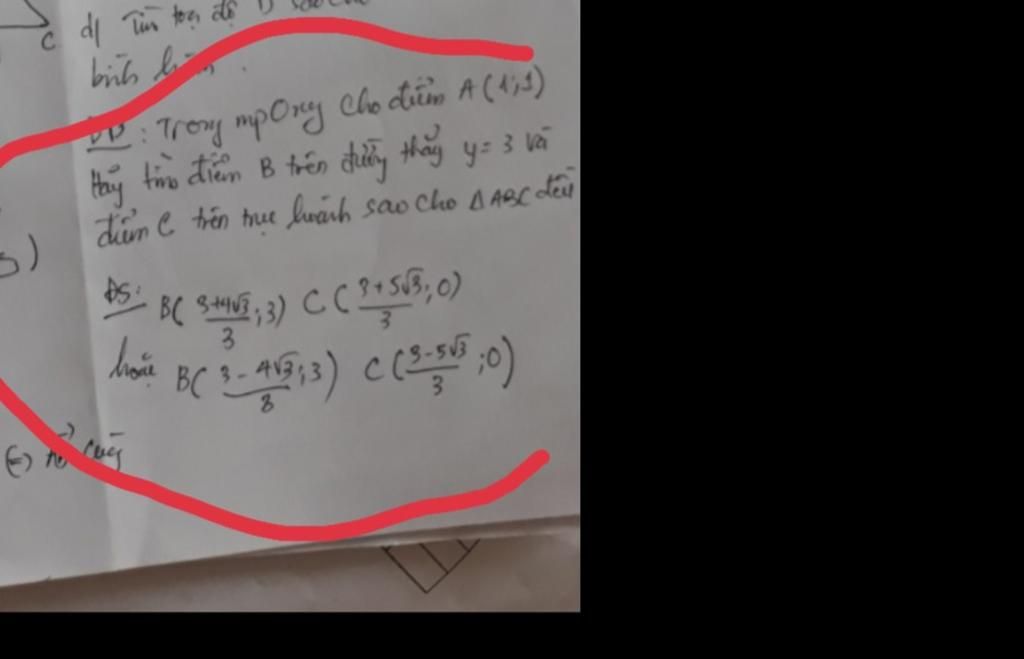 C d) Tìm toạ độ D sao cho
bình hành.
: Trong mpOxy cho điểm A(1;1)
Hãy tìm điểm B trên đường thẳng y = 3 và
điểm C trên trục hoành sao cho ΔABC đều
ĐS: B(\frac{3+4√3}{3};3) C(\frac{3+5√3}{3};0)
hoặc B(\frac{3-4√3}{3};3) C(\frac{3-5√3}{3};0)